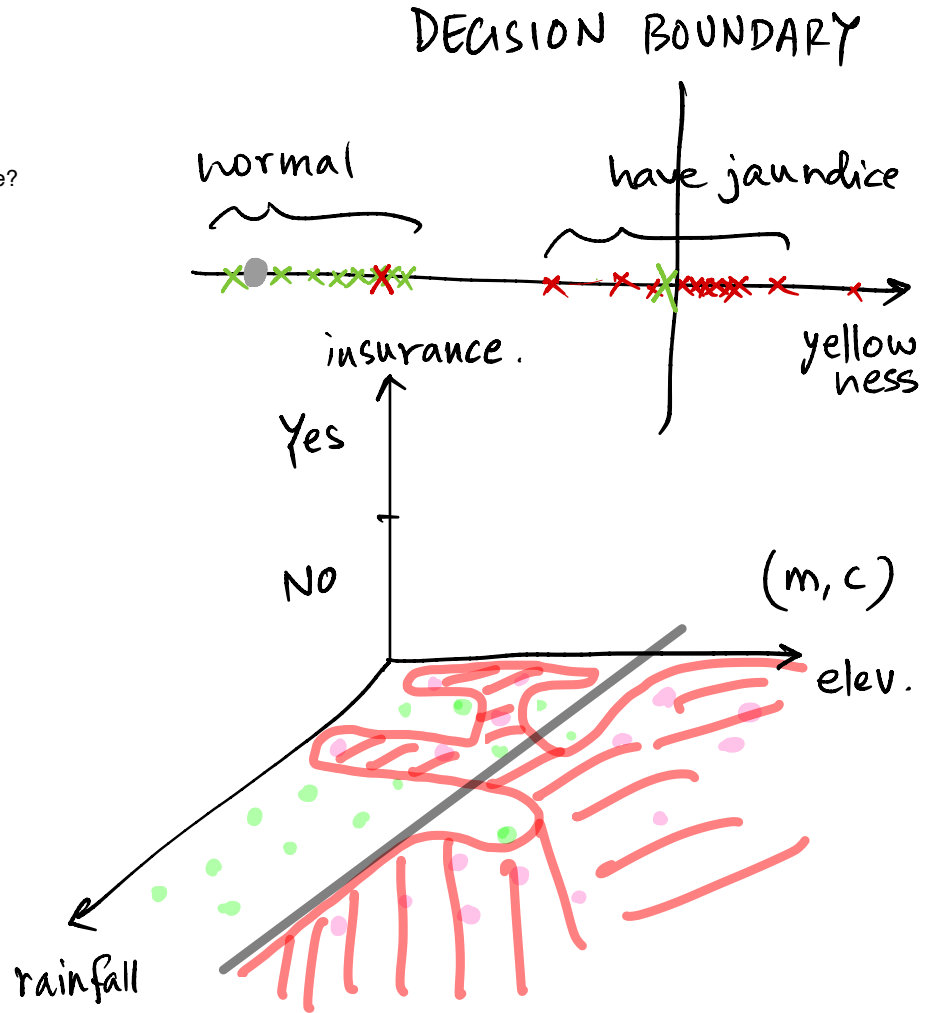 DECISION BOUNDARY
e?
normal
have jaundice
yellow
ness
insurance.
Yes
NO
(m, c)
elev.
rainfall